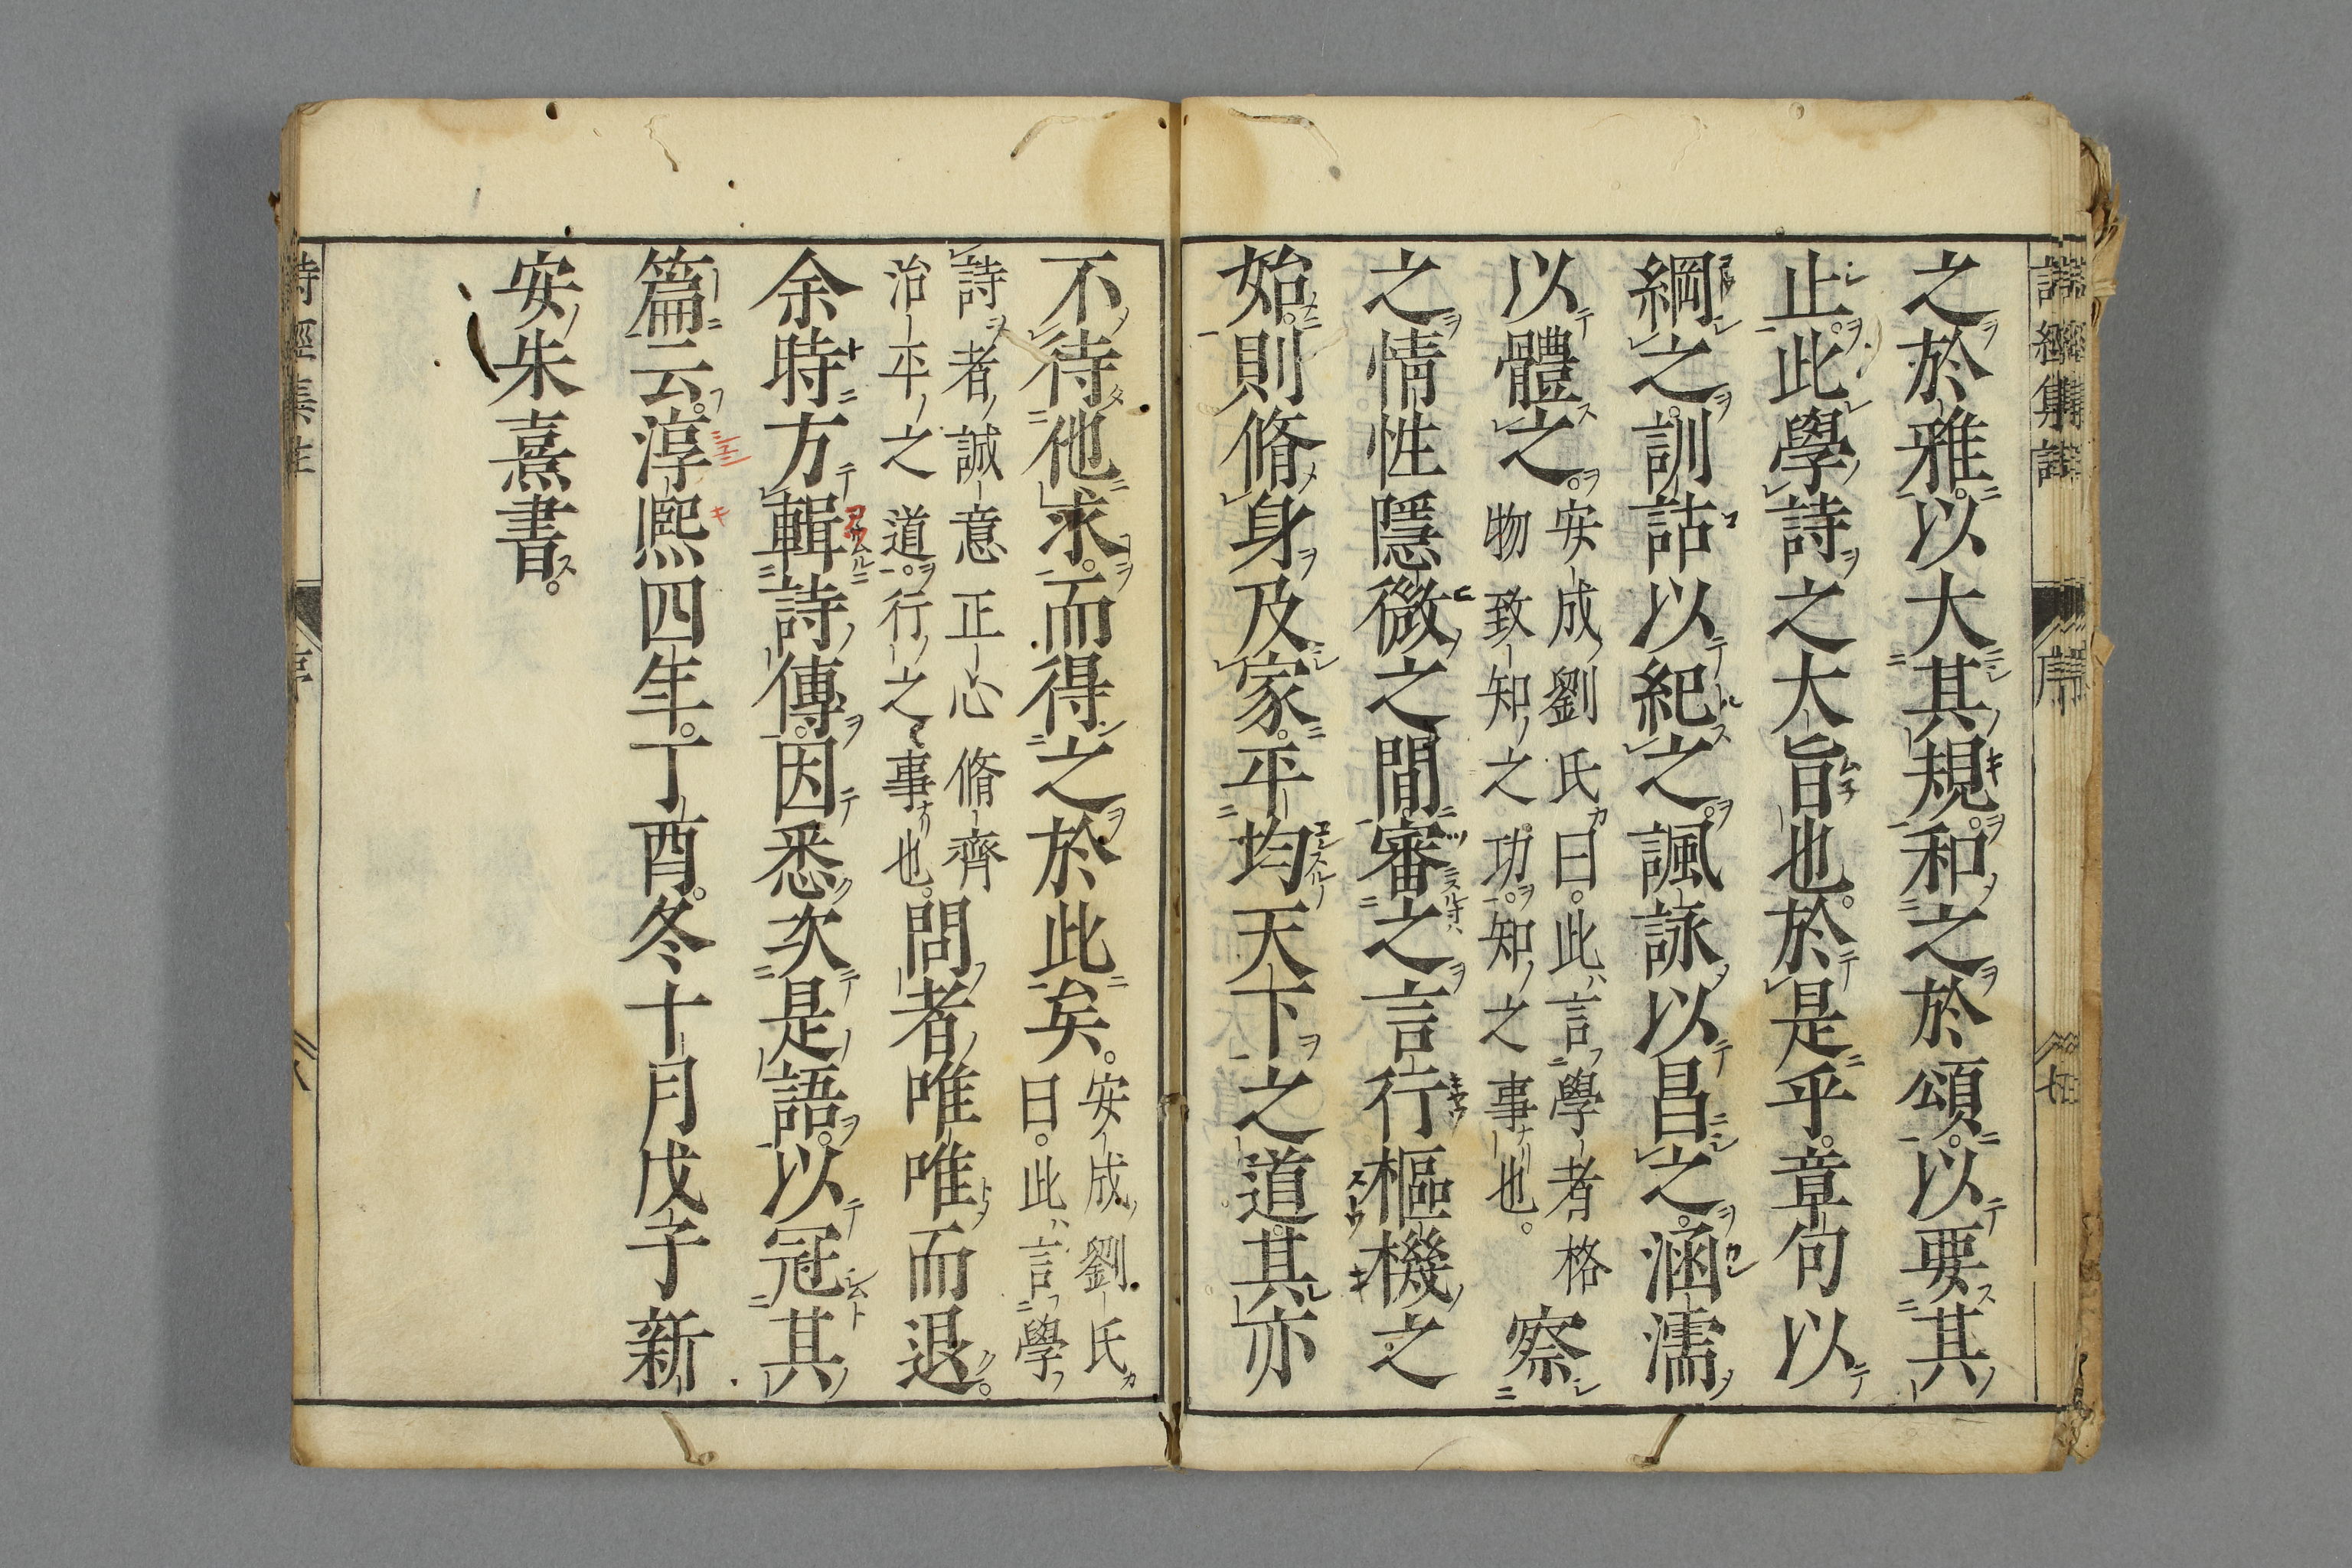 之於雅以大其規和之於頌以要其
止此學詩之大旨也於是乎章句以
綱之訓詁以紀之諷詠以昌之涵濡
以體之
安成劉氏曰此言學者格
物致知之功知之事也
察
之情性隱微之間審之言行樞機之
始則脩身及家平均天下之道其亦
不待他求而得之於此矣
安成劉氏
曰此言學
詩者誠意正心脩齊
治平之道行之之事也
問者唯唯而退
余時方輯詩傳因悉次是語以冠其
篇云淳熙四年丁酉冬十月戊子新
安朱熹書
詩經集註
序
七